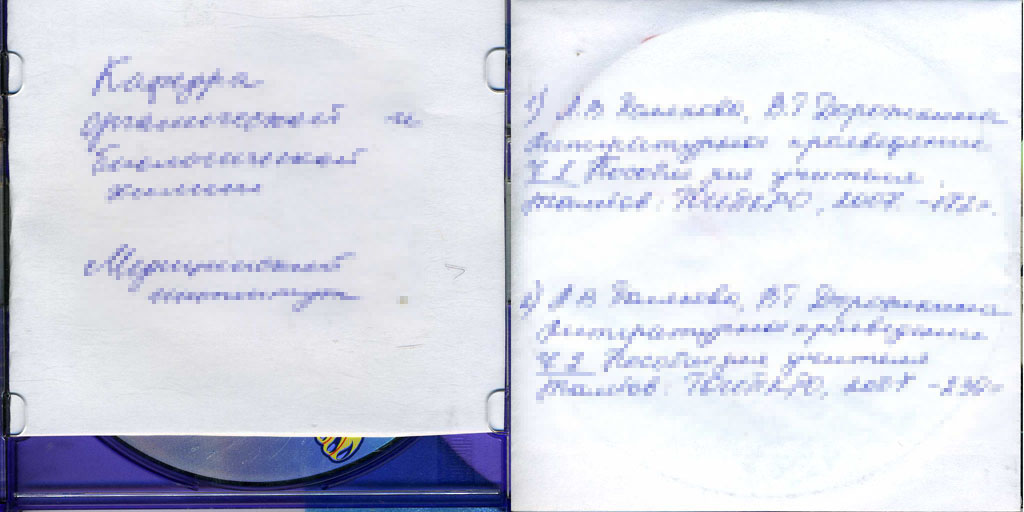 Кафедра
органической и
биологической
химии
Медицинский
институт
1) Л.В. Полякова, В.Г. Дорожкина
Литературные произведения
Ч 1 Пособие для учителя
Тамбов: ТОИПКРО, 2007. -182с.
2) Л.В. Полякова, В.Г. Дорожкина
Литературные произведения
Ч 2 Пособие для учителя
Тамбов: ТОИПКРО, 2007 -230с